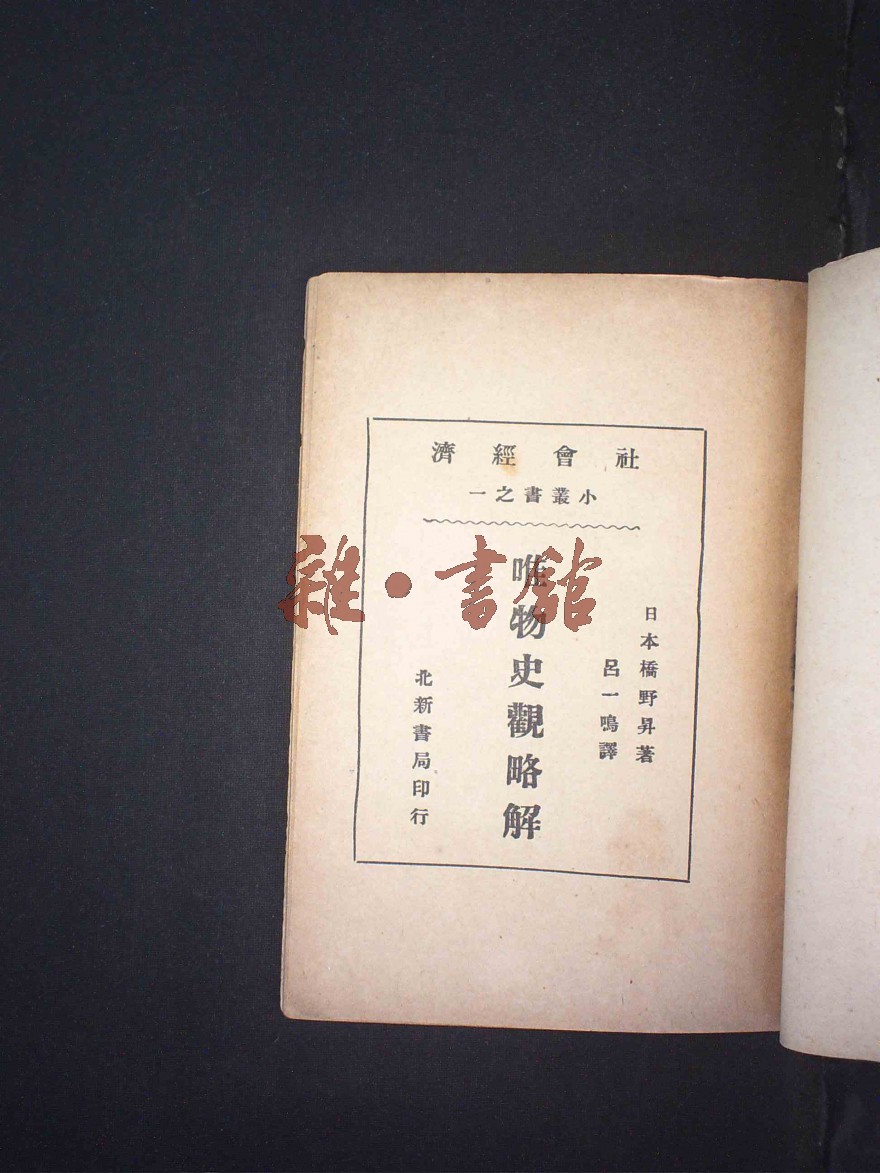 社會經濟
小叢書之一
日本橋野昇著
呂一鳴譯
唯物史觀略解
北新書局印行
雜·書館